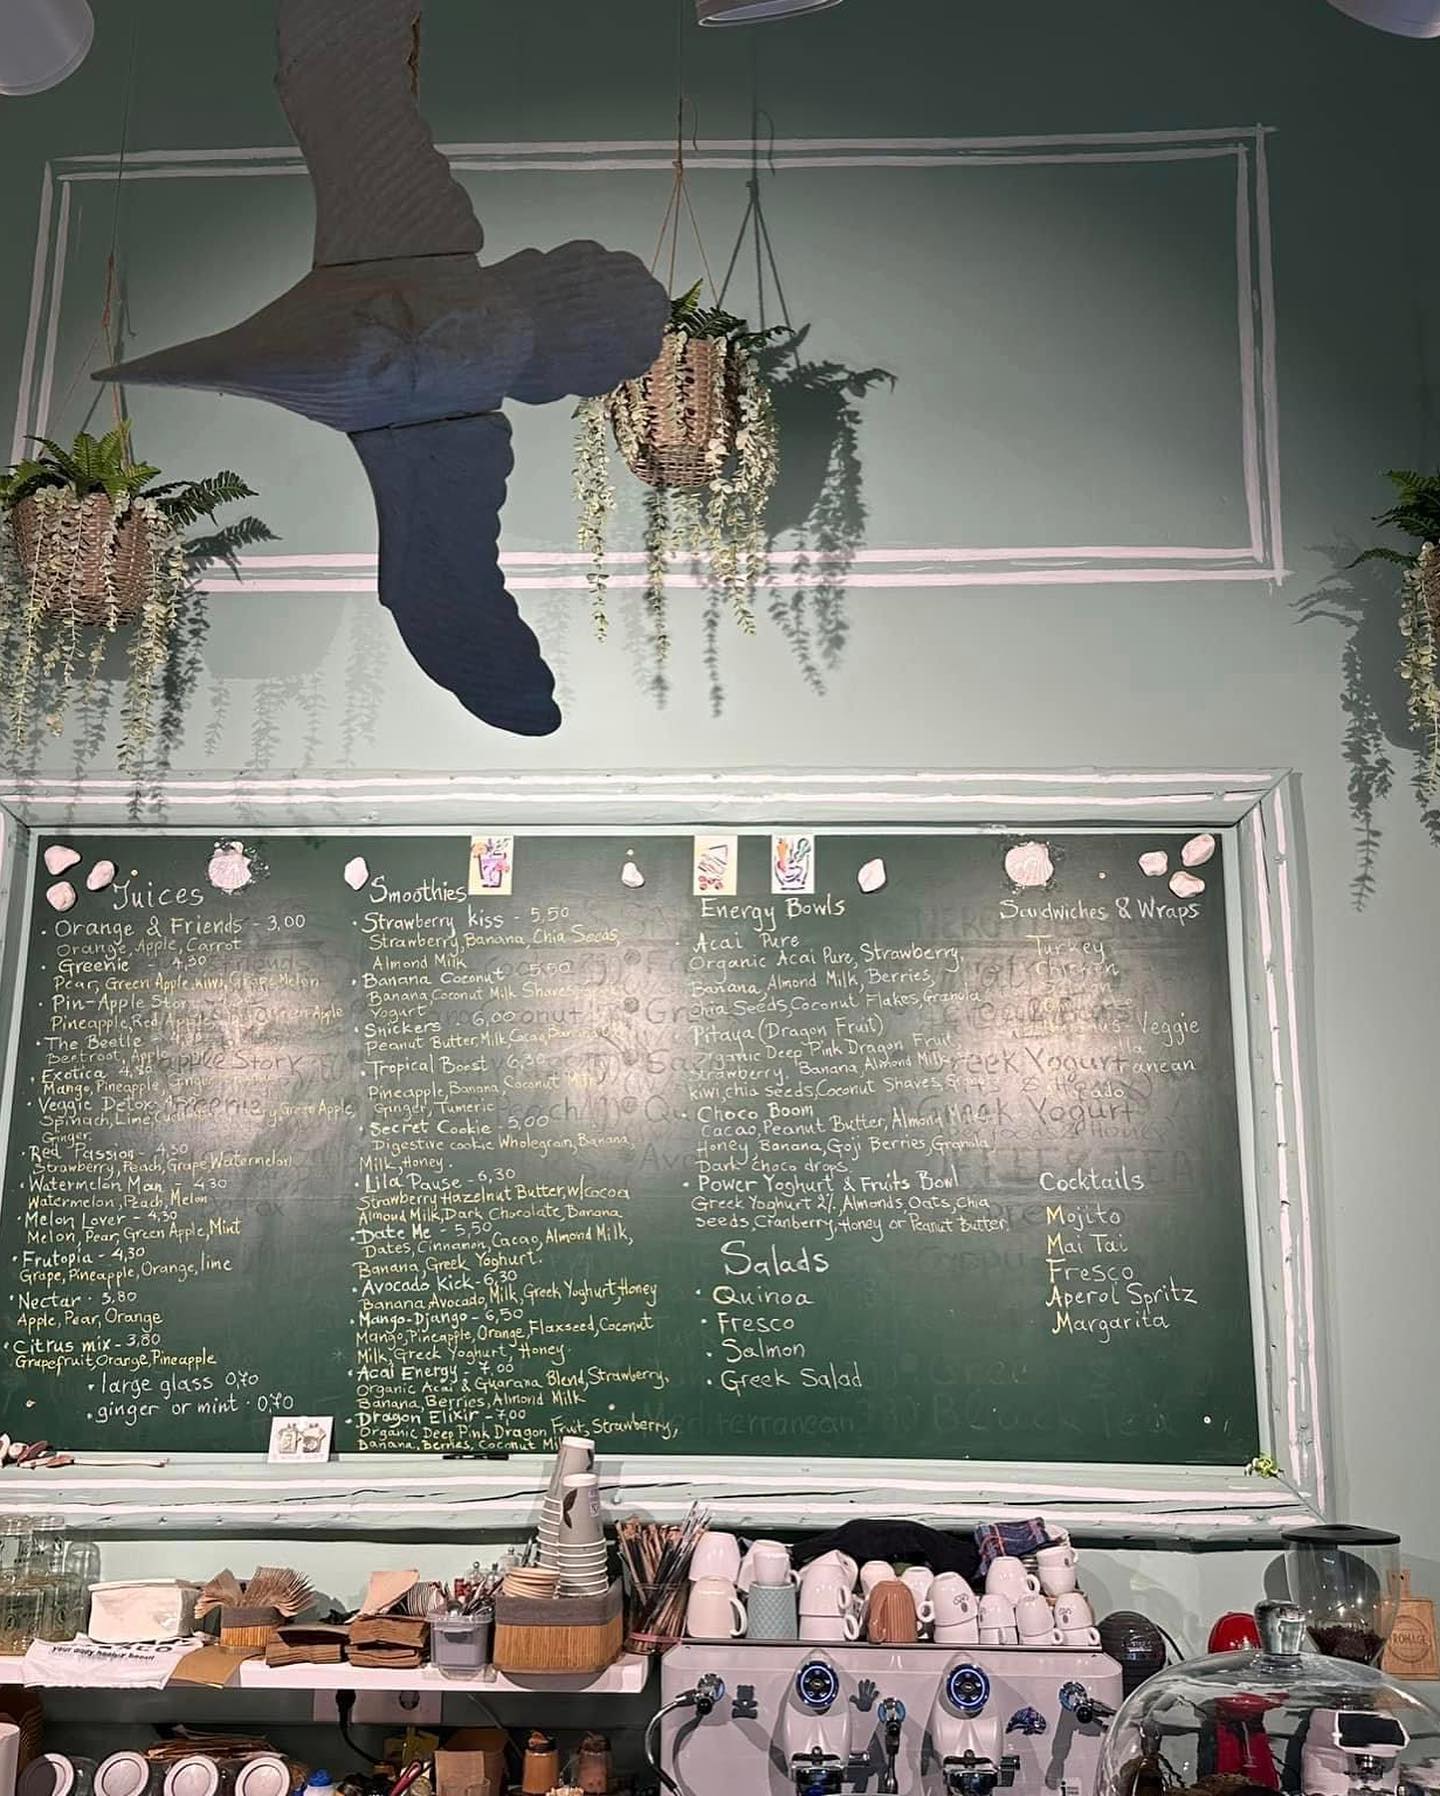 Juices
• Orange & Friends - 3,00
Orange, Apple, Carrot
• Greenie - 4,30
Pear, Green Apple, Kiwi, Grape, Melon
• Pin-Apple Story
Pineapple, Red Apple
• The Beetle
Beetroot, Apple
• Exotica 4,30
Mango, Pineapple, Ginger
• Veggie Detox
Spinach, Lime, Green Apple,
Ginger
• Red Passion - 4,30
Strawberry, Peach, Grape Watermelon
• Watermelon Man - 4,30
Watermelon, Peach, Melon
• Melon Lover - 4,30
Melon, Pear, Green Apple, Mint
• Frutopia - 4,30
Grape, Pineapple, Orange, lime
• Nectar - 3,80
Apple, Pear, Orange
• Citrus mix - 3,80
Grapefruit, Orange, Pineapple
• large glass 0,70
• ginger or mint • 0,70
Smoothies
• Strawberry kiss - 5,50
Strawberry, Banana, Chia Seeds,
Almond Milk
• Banana Coconut 5,50
Banana Coconut Milk Shaves
Yogurt
• Snickers 6,00
Peanut Butter, Milk, Cacao, Banana
• Tropical Boost - 6,30
Pineapple, Banana, Coconut Milk
Ginger, Tumeric
• Secret Cookie - 5,00
Digestive cookie Wholegrain, Banana,
Milk, Honey.
• Lila Pause - 6,30
Strawberry Hazelnut Butter, w/cocoa
Almond Milk, Dark Chocolate, Banana
• Date Me - 5,50
Dates, Cinnamon, Cacao, Almond Milk,
Banana, Greek Yoghurt.
• Avocado Kick - 6,30
Banana, Avocado, Milk, Greek Yoghurt, Honey
• Mango-Django - 6,50
Mango, Pineapple, Orange, Flaxseed, Coconut
Milk, Greek Yoghurt, Honey.
• Acai Energy - 7,00
Organic Acai & Guarana Blend, Strawberry,
Banana, Berries, Almond Milk
• Dragon Elixir - 7,00
Organic Deep Pink Dragon Fruit, Strawberry,
Banana, Berries, Coconut Milk
Energy Bowls
• Acai Pure
Organic Acai Pure, Strawberry,
Banana, Almond Milk, Berries,
Chia Seeds, Coconut Flakes, Granola
• Pitaya (Dragon Fruit)
Organic Deep Pink Dragon Fruit
Strawberry, Banana, Almond Milk
kiwi, chia seeds, Coconut Shaves,
• Choco Boom
Cacao, Peanut Butter, Almond Milk
Honey, Banana, Goji Berries, Granola
Dark choco drops.
• Power Yoghurt & Fruits Bowl
Greek Yoghurt 2%, Almonds, Oats, Chia
seeds, Cranberry, Honey or Peanut Butter
Salads
• Quinoa
• Fresco
• Salmon
• Greek Salad
Sandwiches & Wraps
Turkey
Chicken
Veggie
Cocktails
Mojito
Mai Tai
Fresco
Aperol Spritz
Margarita
your daily health boost
FROMAGE